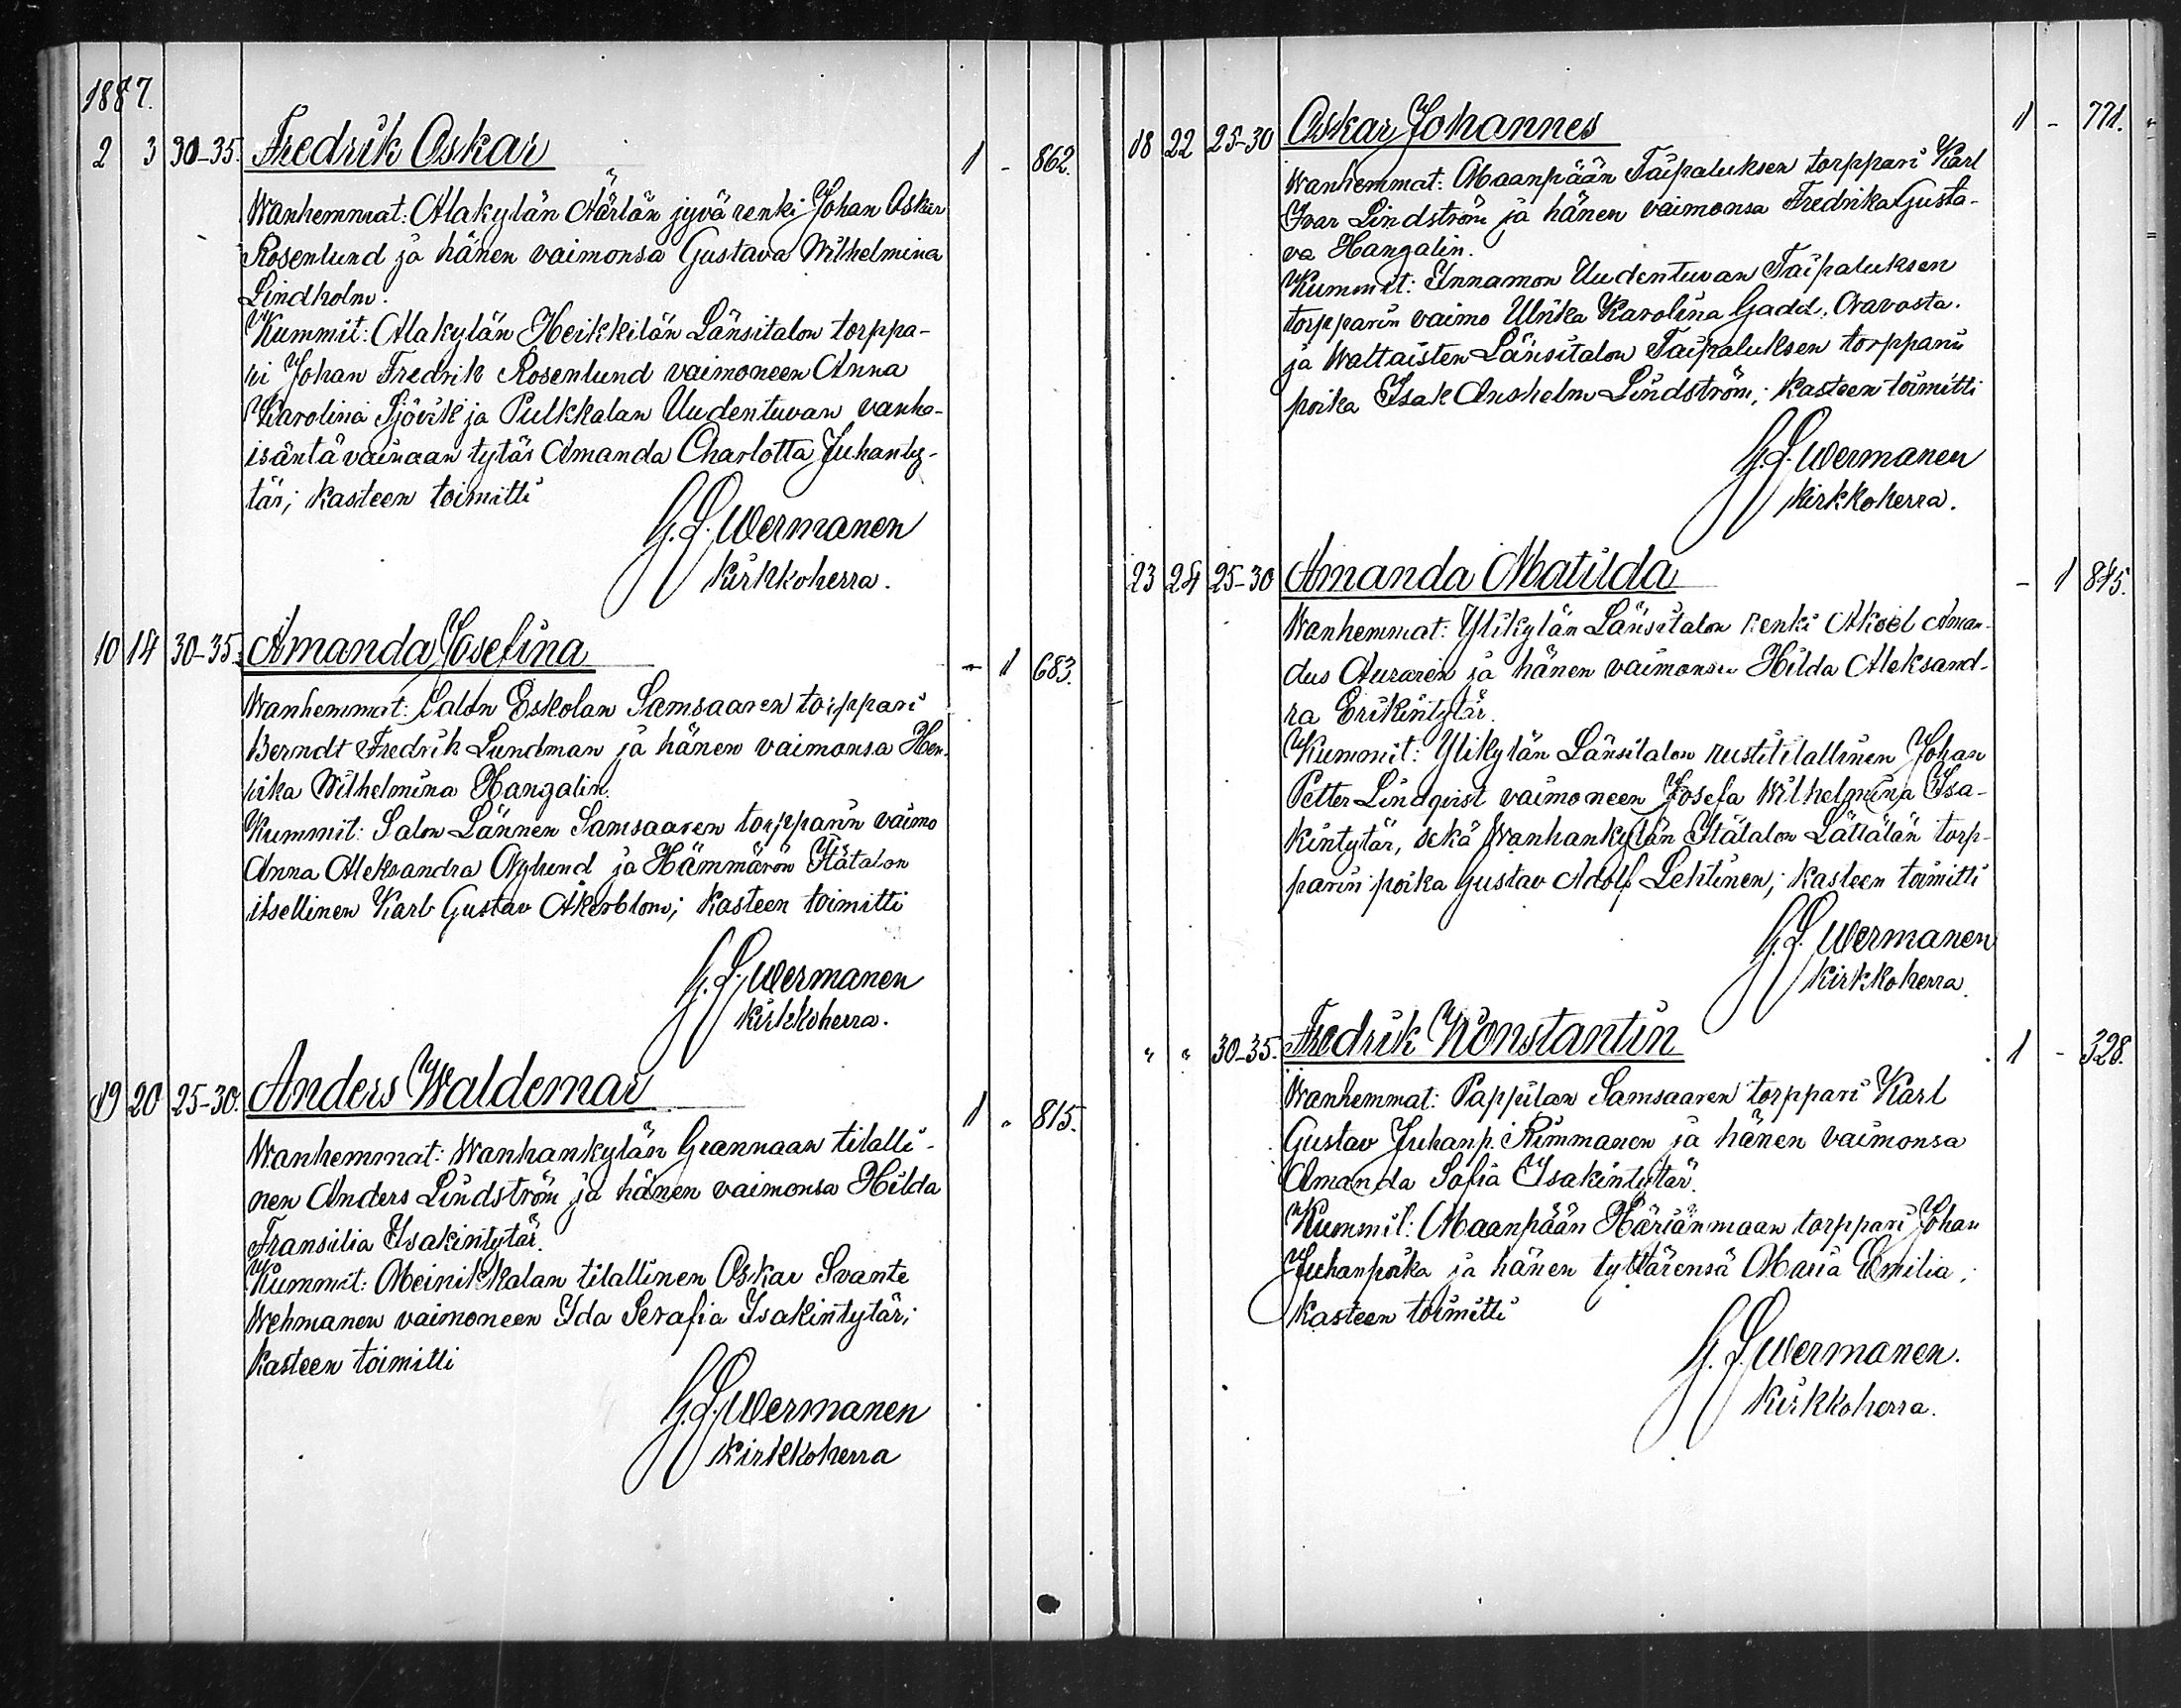 1887.
2 3 30-35. Fredrik Oskar 1 - 862.
Wanhemmat: Alakylän Äärlän jyvä renki Johan Oskar
Rosenlund ja hänen vaimonsa Gustava Wilhelmina
Lindholm.
Kummit: Alakylän Heikkilän Länsitalon torppa-
ri Johan Fredrik Rosenlund vaimoneen Anna
Karolina Sjövik ja Pulkkalan Uudentuvan vanha-
isäntä vainaan tytär Amanda Charlotta Juhanty-
tär; kasteen toimitti
G. S. Wermanen
kirkkoherra.
10 14 30-35. Amanda Josefina - 1 683.
Wanhemmat: Salon Eskolan Samsaaren torppari
Berndt Fredrik Lundman ja hänen vaimonsa Hen-
rika Wilhelmina Hangalin.
Kummit: Salon Lännen Samsaaren torpparin vaimo
Anna Aleksandra Nylund ja Hämmärön Itätalon
itsellinen Karl Gustav Åkerblom; kasteen toimitti
G. S. Wermanen
kirkkoherra.
19 20 25-30. Anders Waldemar 1 - 815.
Wanhemmat: Wanhankylän Grannaan tilalli-
nen Anders Lindström ja hänen vaimonsa Hilda
Fransilia Isakintytär.
Kummit: Meinikkalan tilallinen Oskar Svante
Wehmanen vaimoneen Ida Serafia Isakintytär;
kasteen toimitti
G. S. Wermanen
kirkkoherra
18 22 25-30 Oskar Johannes 1 - 771.
Wanhemmat: Maanpään Taipaluksen torppari Karl
Ivar Lindström ja hänen vaimonsa Fredrika Gusta-
va Hangalin.
Kummit: Innamon Uudentuvan Taipaluksen
torpparin vaimo Ulrika Karolina Gadd,
ja Waltaisten Länsitalon Taipaluksen torpparin
poika Isak Anshelm Lindström; kasteen toimitti
G. S. Wermanen
kirkkoherra.
23 24 25-30 Amanda Matilda - 1 845.
Wanhemmat: Ylikylän Länsitalon renki Aksel Aman-
dus Auraren ja hänen vaimonsa Hilda Aleksand-
ra Erikintytär.
Kummit: Ylikylän Länsitalon rustitilallinen Johan
Petter Lindqvist vaimoneen Josefa Wilhelmina Isa-
kintytär, sekä Wanhankylän Itätalon Lättälän torp-
parin poika Gustav Adolf Lehtinen; kasteen toimitti
G. S. Wermanen
kirkkoherra.
" " 30-35. Fredrik Konstantin 1 - 328.
Wanhemmat: Pappilan Samsaaren torppari Karl
Gustav Juhanp. Rimmanen ja hänen vaimonsa
Amanda Sofia Isakintytär.
Kummit: Maanpään Härjänmaan torppari Johan
Juhanpoika ja hänen tyttärensä Maria Emilia;
kasteen toimitti
G. S. Wermanen.
kirkkoherra.